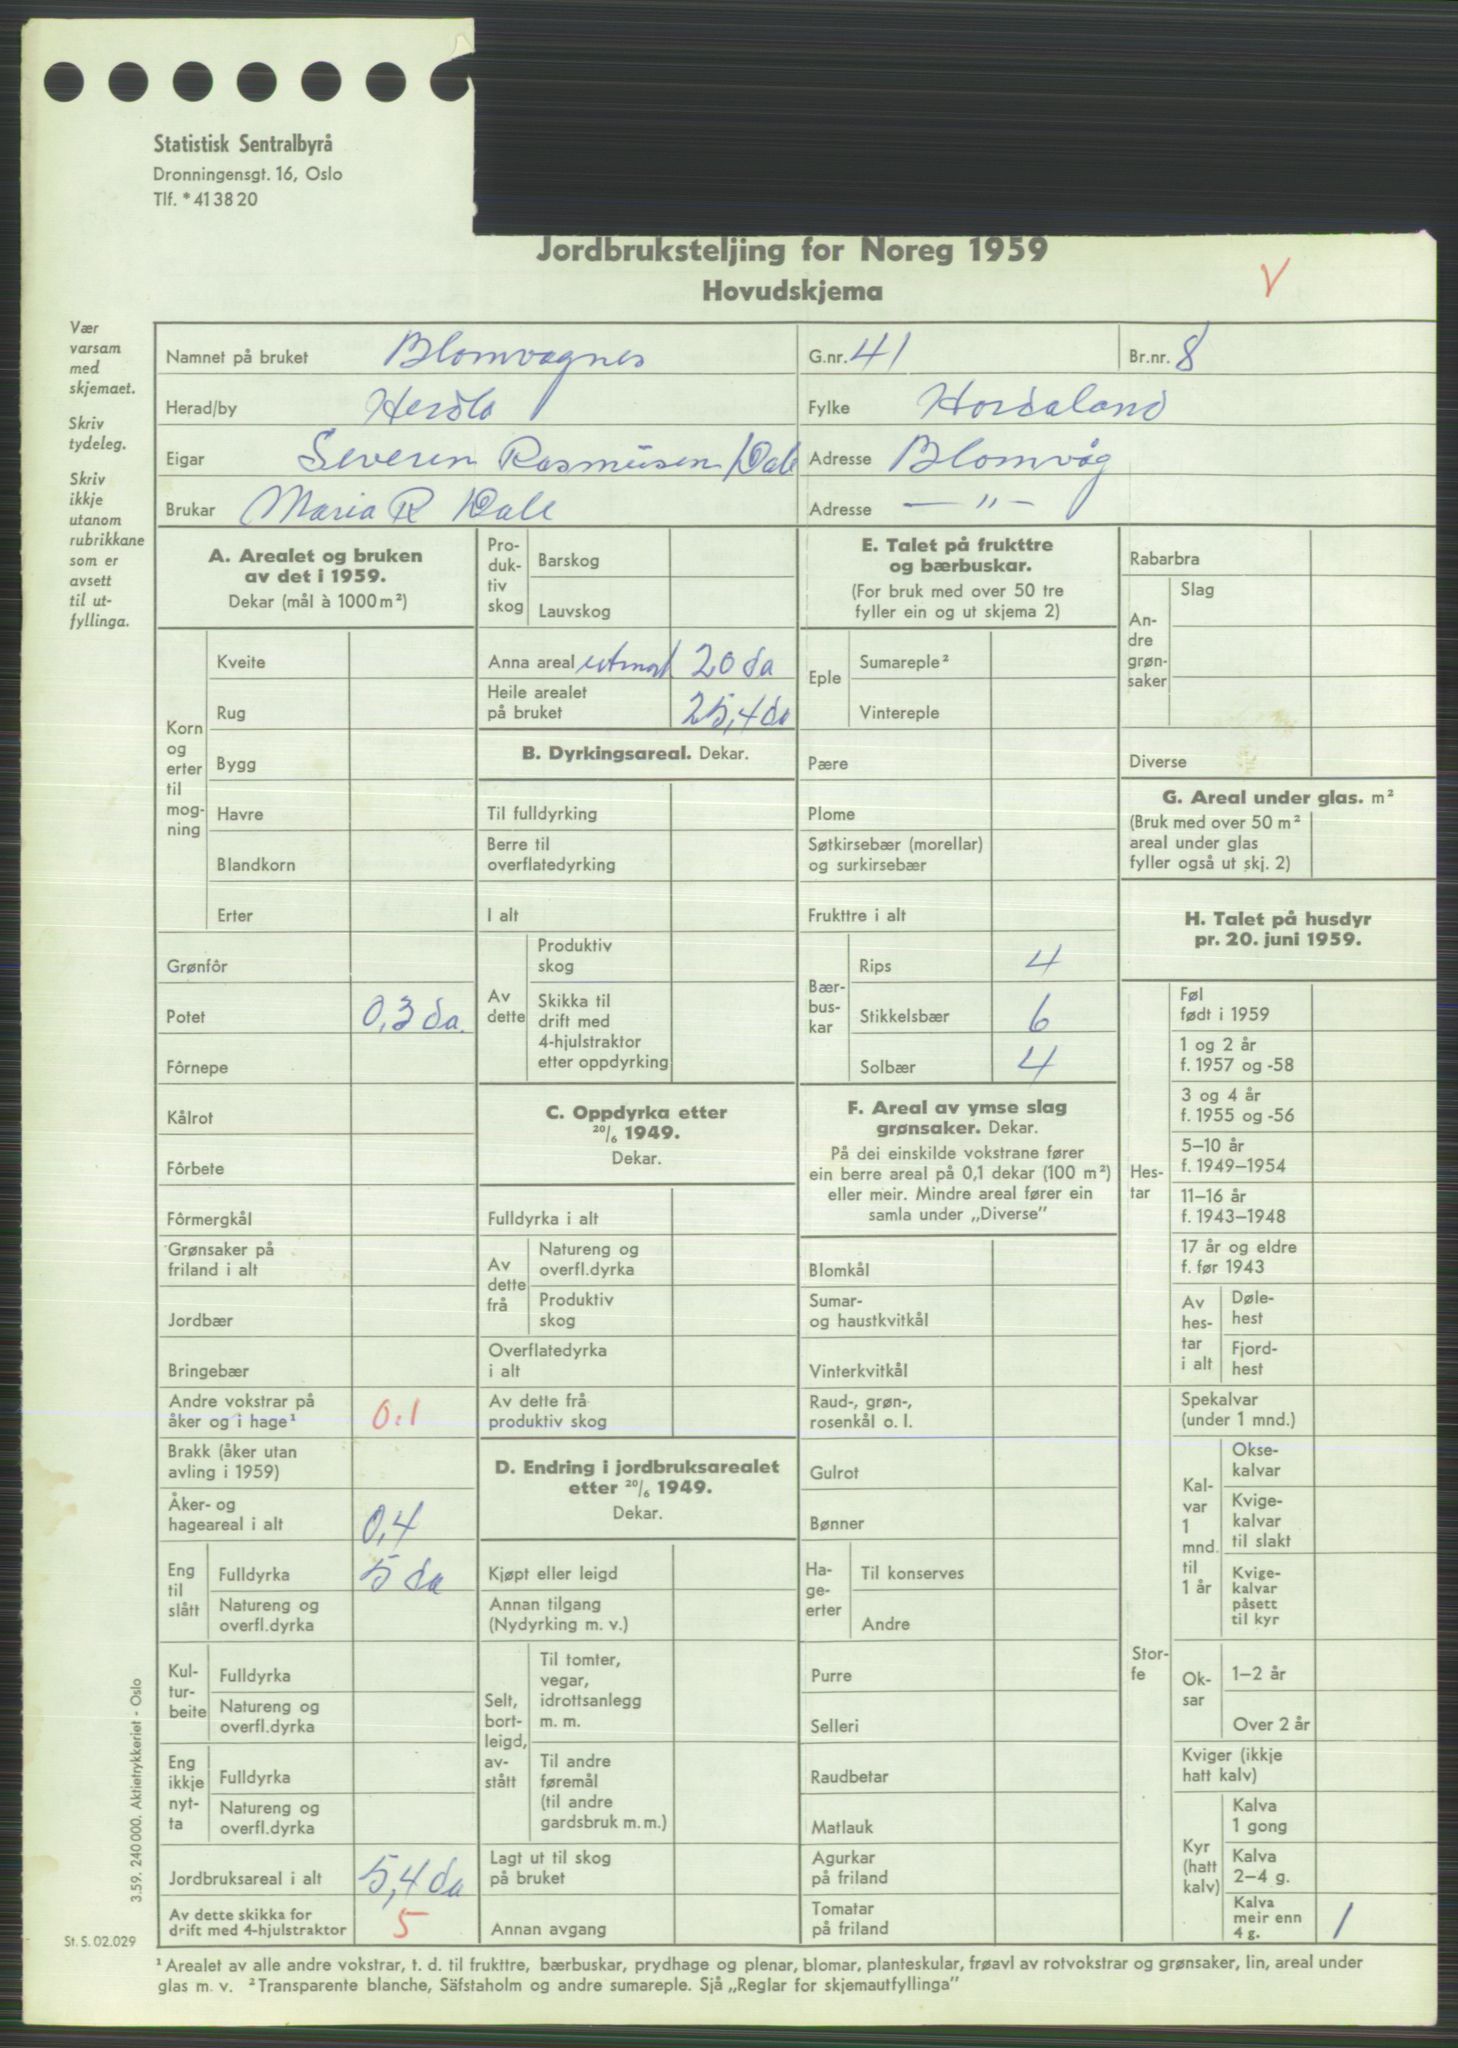 Statistisk Sentralbyrå
Dronningensgt. 16, Oslo
Tlf. * 41 38 20
Jordbruksteljing for Noreg 1959
Hovudskjema
V
Vær
varsam
med
skjemaet.
Skriv
tydeleg.
Skriv
ikkje
utanom
rubrikkane
som er
avsett
til ut-
fyllinga.
Namnet på bruket Blomvagnes G.nr. 41 Br.nr. 8
Herad/by Herdla Fylke Hordaland
Eigar Severin Rasmusen Dale Adresse Blomvåg
Brukar Maria R Dale Adresse — " —
A. Arealet og bruken
av det i 1959.
Dekar (mål à 1000 m²)
Korn
og
erter
til
mog-
ning
Kveite
Rug
Bygg
Havre
Blandkorn
Erter
Grønfôr
Potet 0,3 da.
Fôrnepe
Kålrot
Fôrbete
Fôrmergkål
Grønsaker på
friland i alt
Jordbær
Bringebær
Andre vokstrar på
åker og i hage¹ 0.1
Brakk (åker utan
avling i 1959)
Åker- og
hageareal i alt 0,4
Eng
til
slått
Fulldyrka 5 da
Natureng og
overfl.dyrka
Kul-
tur-
beite
Fulldyrka
Natureng og
overfl.dyrka
Eng
ikkje
nyt-
ta
Fulldyrka
Natureng og
overfl.dyrka
Jordbruksareal i alt 5,4 da
Av dette skikka for
drift med 4-hjulstraktor 5
Pro-
duk-
tiv
skog
Barskog
Lauvskog
Anna areal utmark 20 da
Heile arealet
på bruket 25,4 da
B. Dyrkingsareal. Dekar.
Til fulldyrking
Berre til
overflatedyrking
I alt
Av
dette
Produktiv
skog
Skikka til
drift med
4-hjulstraktor
etter oppdyrking
C. Oppdyrka etter
20/6 1949.
Dekar.
Fulldyrka i alt
Av
dette
frå
Natureng og
overfl.dyrka
Produktiv
skog
Overflatedyrka
i alt
Av dette frå
produktiv skog
D. Endring i jordbruksarealet
etter 20/6 1949.
Dekar.
Kjøpt eller leigd
Annan tilgang
(Nydyrking m. v.)
Selt,
bort-
leigd,
av-
stått
Til tomter,
vegar,
idrottsanlegg
m. m.
Til andre
føremål
(til andre
gardsbruk m. m.)
Lagt ut til skog
på bruket
Annan avgang
E. Talet på frukttre
og bærbuskar.
(For bruk med over 50 tre
fyller ein og ut skjema 2)
Eple
Sumareple²
Vintereple
Pære
Plome
Søtkirsebær (morellar)
og surkirsebær
Frukttre i alt
Bær-
bus-
kar
Rips 4
Stikkelsbær 6
Solbær 4
F. Areal av ymse slag
grønsaker. Dekar.
På dei einskilde vokstrane fører
ein berre areal på 0,1 dekar (100 m²)
eller meir. Mindre areal fører ein
samla under „Diverse"
Blomkål
Sumar-
og haustkvitkål
Vinterkvitkål
Raud-, grøn-,
rosenkål o. l.
Gulrot
Bønner
Ha-
ge-
erter
Til konserves
Andre
Purre
Selleri
Raudbetar
Matlauk
Agurkar
på friland
Tomatar
på friland
Rabarbra
An-
dre
grøn-
saker
Slag
Diverse
G. Areal under glas. m²
(Bruk med over 50 m²
areal under glas
fyller også ut skj. 2)
H. Talet på husdyr
pr. 20. juni 1959.
Hes-
tar
Føl
født i 1959
1 og 2 år
f. 1957 og -58
3 og 4 år
f. 1955 og -56
5–10 år
f. 1949–1954
11–16 år
f. 1943–1948
17 år og eldre
f. før 1943
Av
hes-
tar
i alt
Døle-
hest
Fjord-
hest
Stor-
fe
Spekalvar
(under 1 mnd.)
Kal-
var
1
mnd.
til
1 år
Okse-
kalvar
Kvige-
kalvar
til slakt
Kvige-
kalvar
påsett
til kyr
Ok-
sar
1–2 år
Over 2 år
Kviger (ikkje
hatt kalv)
Kyr
(hatt
kalv)
Kalva
1 gong
Kalva
2–4 g.
Kalva
meir enn
4 g. 1
3.59. 240 000. Aktietrykkeriet - Oslo
St. S. 02.029
¹ Arealet av alle andre vokstrar, t. d. til frukttre, bærbuskar, prydhage og plenar, blomar, planteskular, frøavl av rotvokstrar og grønsaker, lin, areal under
glas m. v. ² Transparente blanche, Säfstaholm og andre sumareple. Sjå „Reglar for skjemautfyllinga"